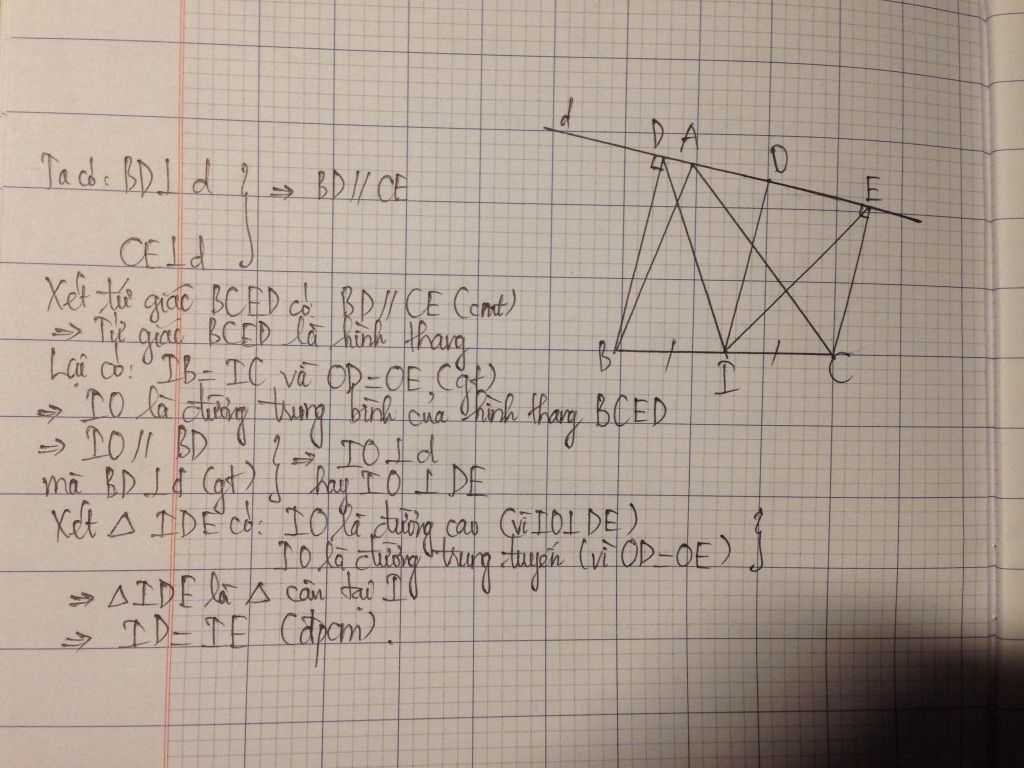 Ta có: BD⊥d } ⇒ BD//CE
CE⊥d
Xét tứ giác BCED có BD//CE (cmt)
⇒ Tứ giác BCED là hình thang
Lại có: IB=IC và OD=OE (gt)
⇒ IO là đường trung bình của hình thang BCED
⇒ IO// BD } ⇒ IO⊥d
mà BD⊥d (gt) hay IO⊥DE
Xét △ IDE có: IO là đường cao (vì IO⊥DE)
IO là đường trung tuyến (vì OD=OE) }
⇒ △IDE là △ cân tại I
⇒ ID=IE (đpcm).
d
D A O E
B I C